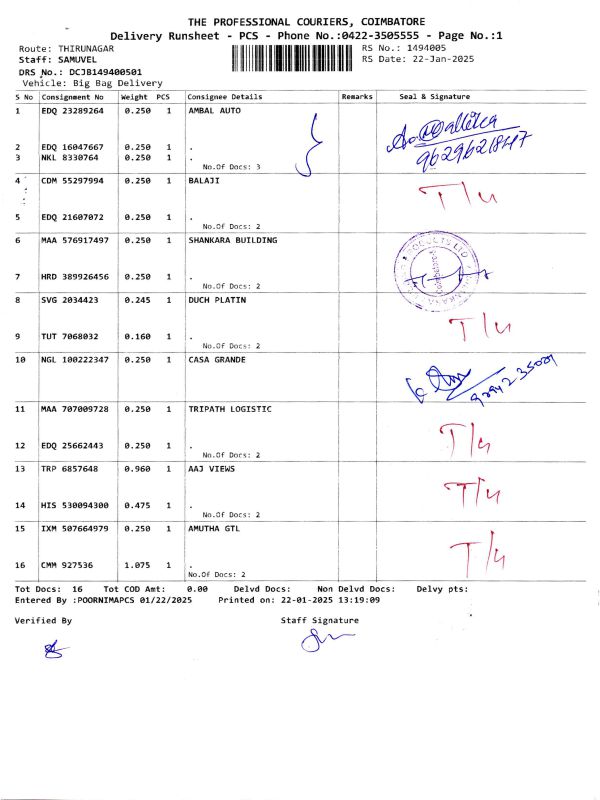 THE PROFESSIONAL COURIERS, COIMBATORE
Delivery Runsheet - PCS - Phone No.:0422-3505555 - Page No.:1
Route: THIRUNAGAR
RS No.: 1494005
Staff: SAMUVEL
RS Date: 22-Jan-2025
DRS No.: DCJB149400501
Vehicle: Big Bag Delivery
S No Consignment No Weight PCS Consignee Details Remarks Seal & Signature
1 EDQ 23289264 0.250 1 AMBAL AUTO
2 EDQ 16047667 0.250 1 .
3 NKL 8330764 0.250 1 .
No.Of Docs: 3
9629621847
4 CDM 55297994 0.250 1 BALAJI
T/u
5 EDQ 21607072 0.250 1 .
No.Of Docs: 2
6 MAA 576917497 0.250 1 SHANKARA BUILDING
7 HRD 389926456 0.250 1 .
No.Of Docs: 2
8 SVG 2034423 0.245 1 DUCH PLATIN
T/u
9 TUT 7068032 0.160 1 .
No.Of Docs: 2
10 NGL 100222347 0.250 1 CASA GRANDE
11 MAA 707009728 0.250 1 TRIPATH LOGISTIC
T/u
12 EDQ 25662443 0.250 1 .
No.Of Docs: 2
13 TRP 6857648 0.960 1 AAJ VIEWS
T/u
14 HIS 530094300 0.475 1 .
No.Of Docs: 2
15 IXM 507664979 0.250 1 AMUTHA GTL
T/u
16 CMM 927536 1.075 1 .
No.Of Docs: 2
Tot Docs: 16 Tot COD Amt: 0.00 Delvd Docs: Non Delvd Docs: Delvy pts:
Entered By :POORNIMAPCS 01/22/2025 Printed on: 22-01-2025 13:19:09
Verified By Staff Signature